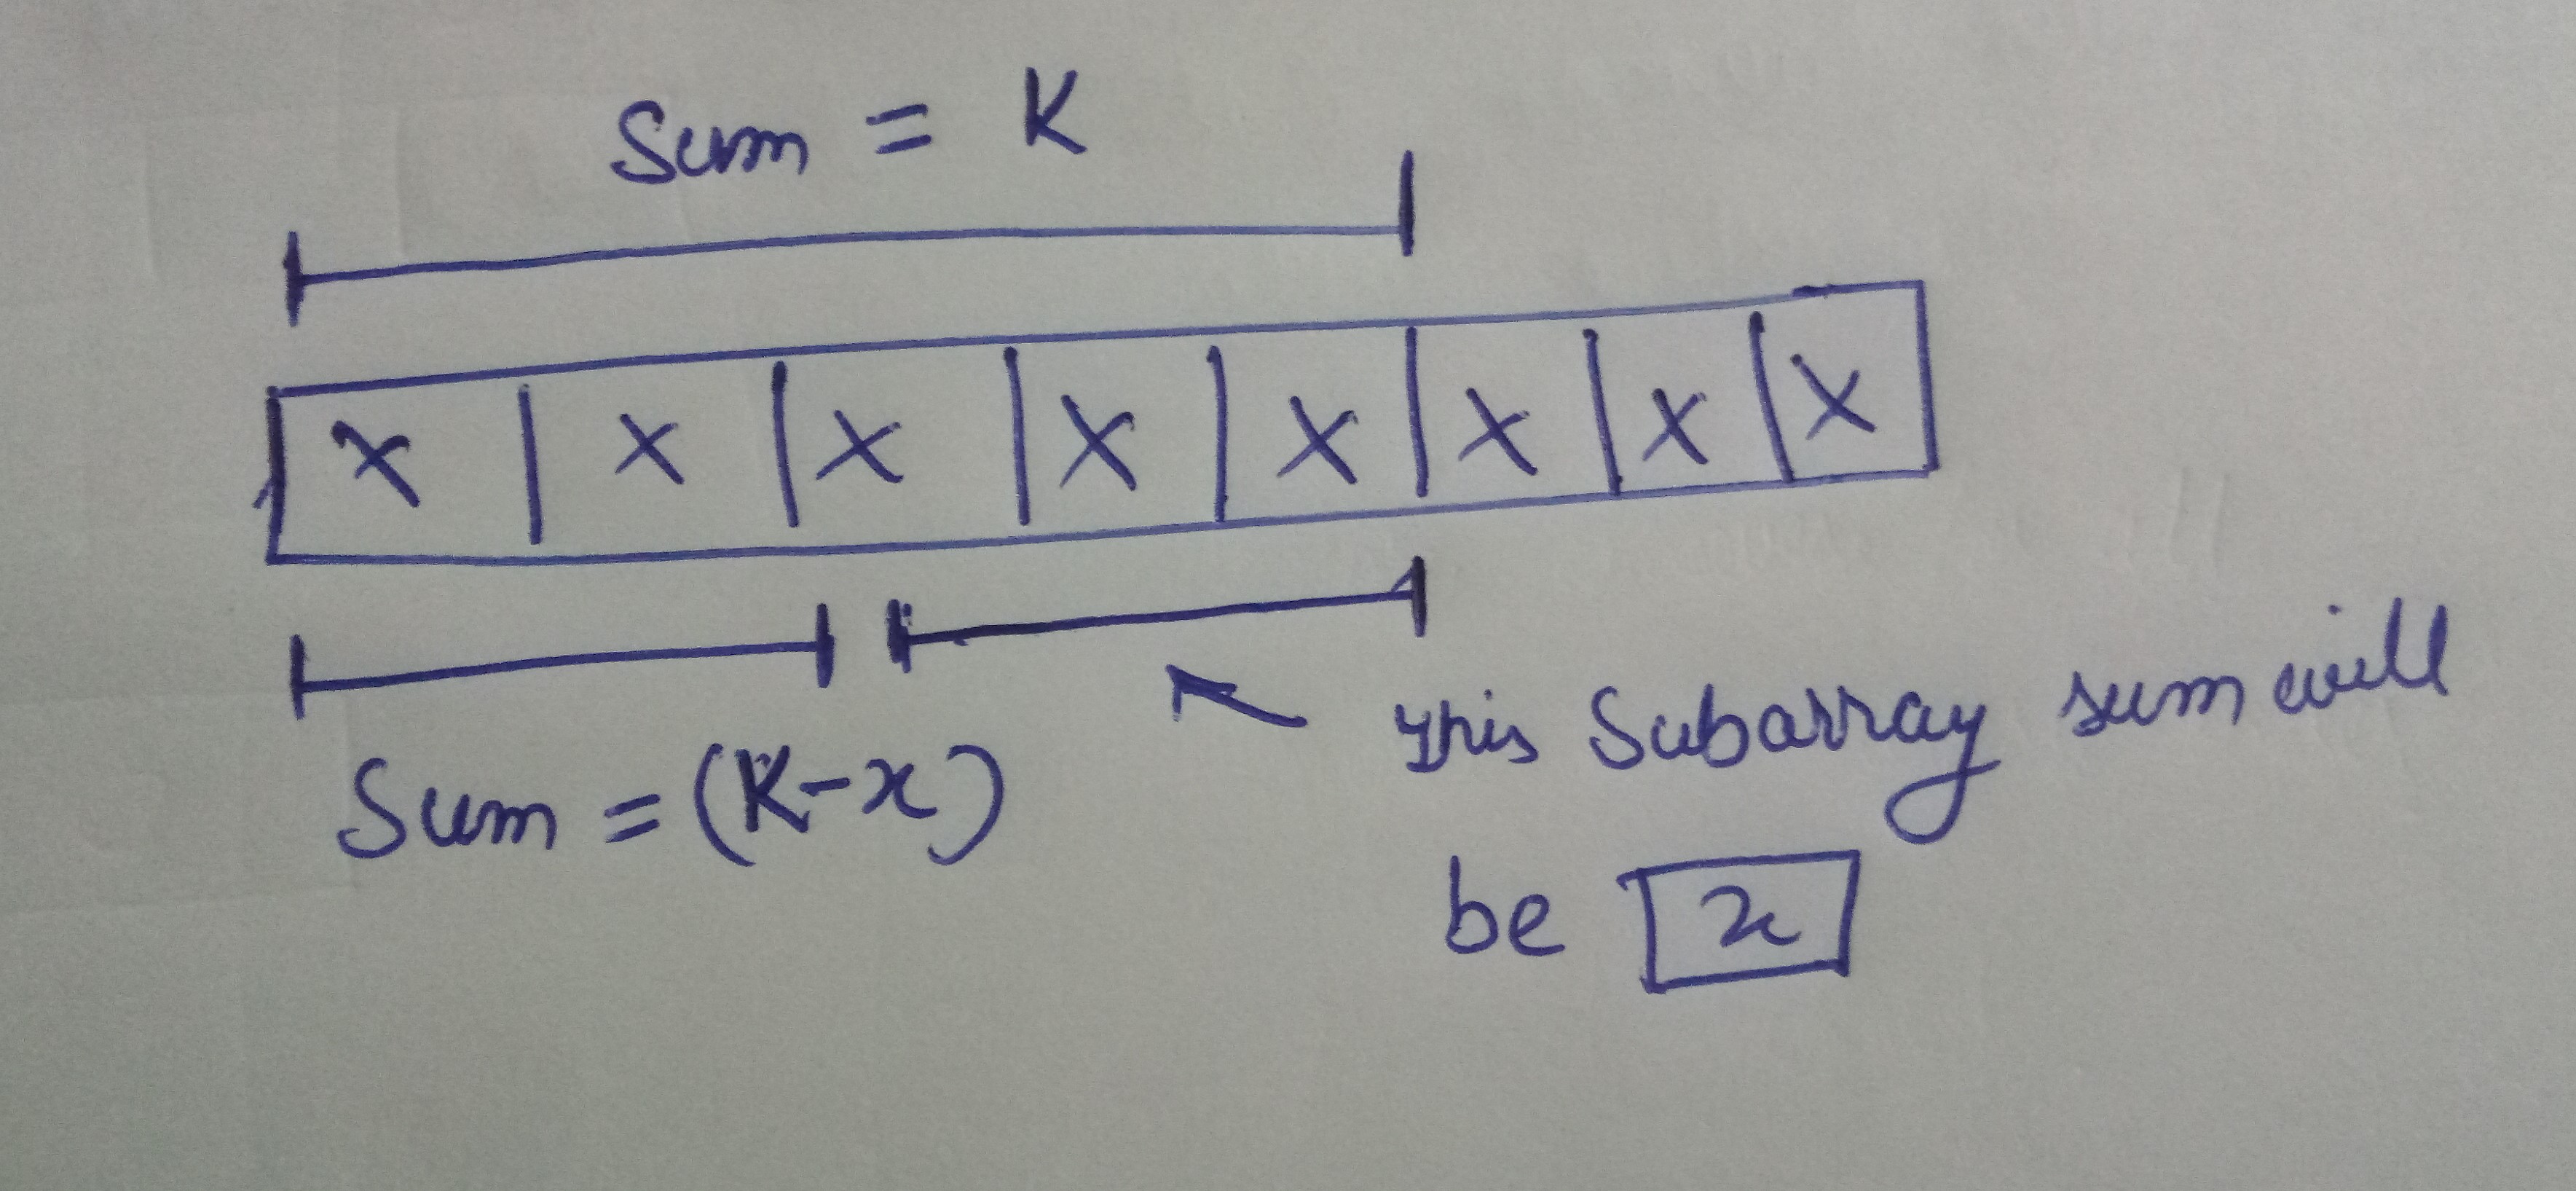 Sum = K
x | x | x | x | x | x | x | x
Sum = (K-x)
this Subarray sum will
be x